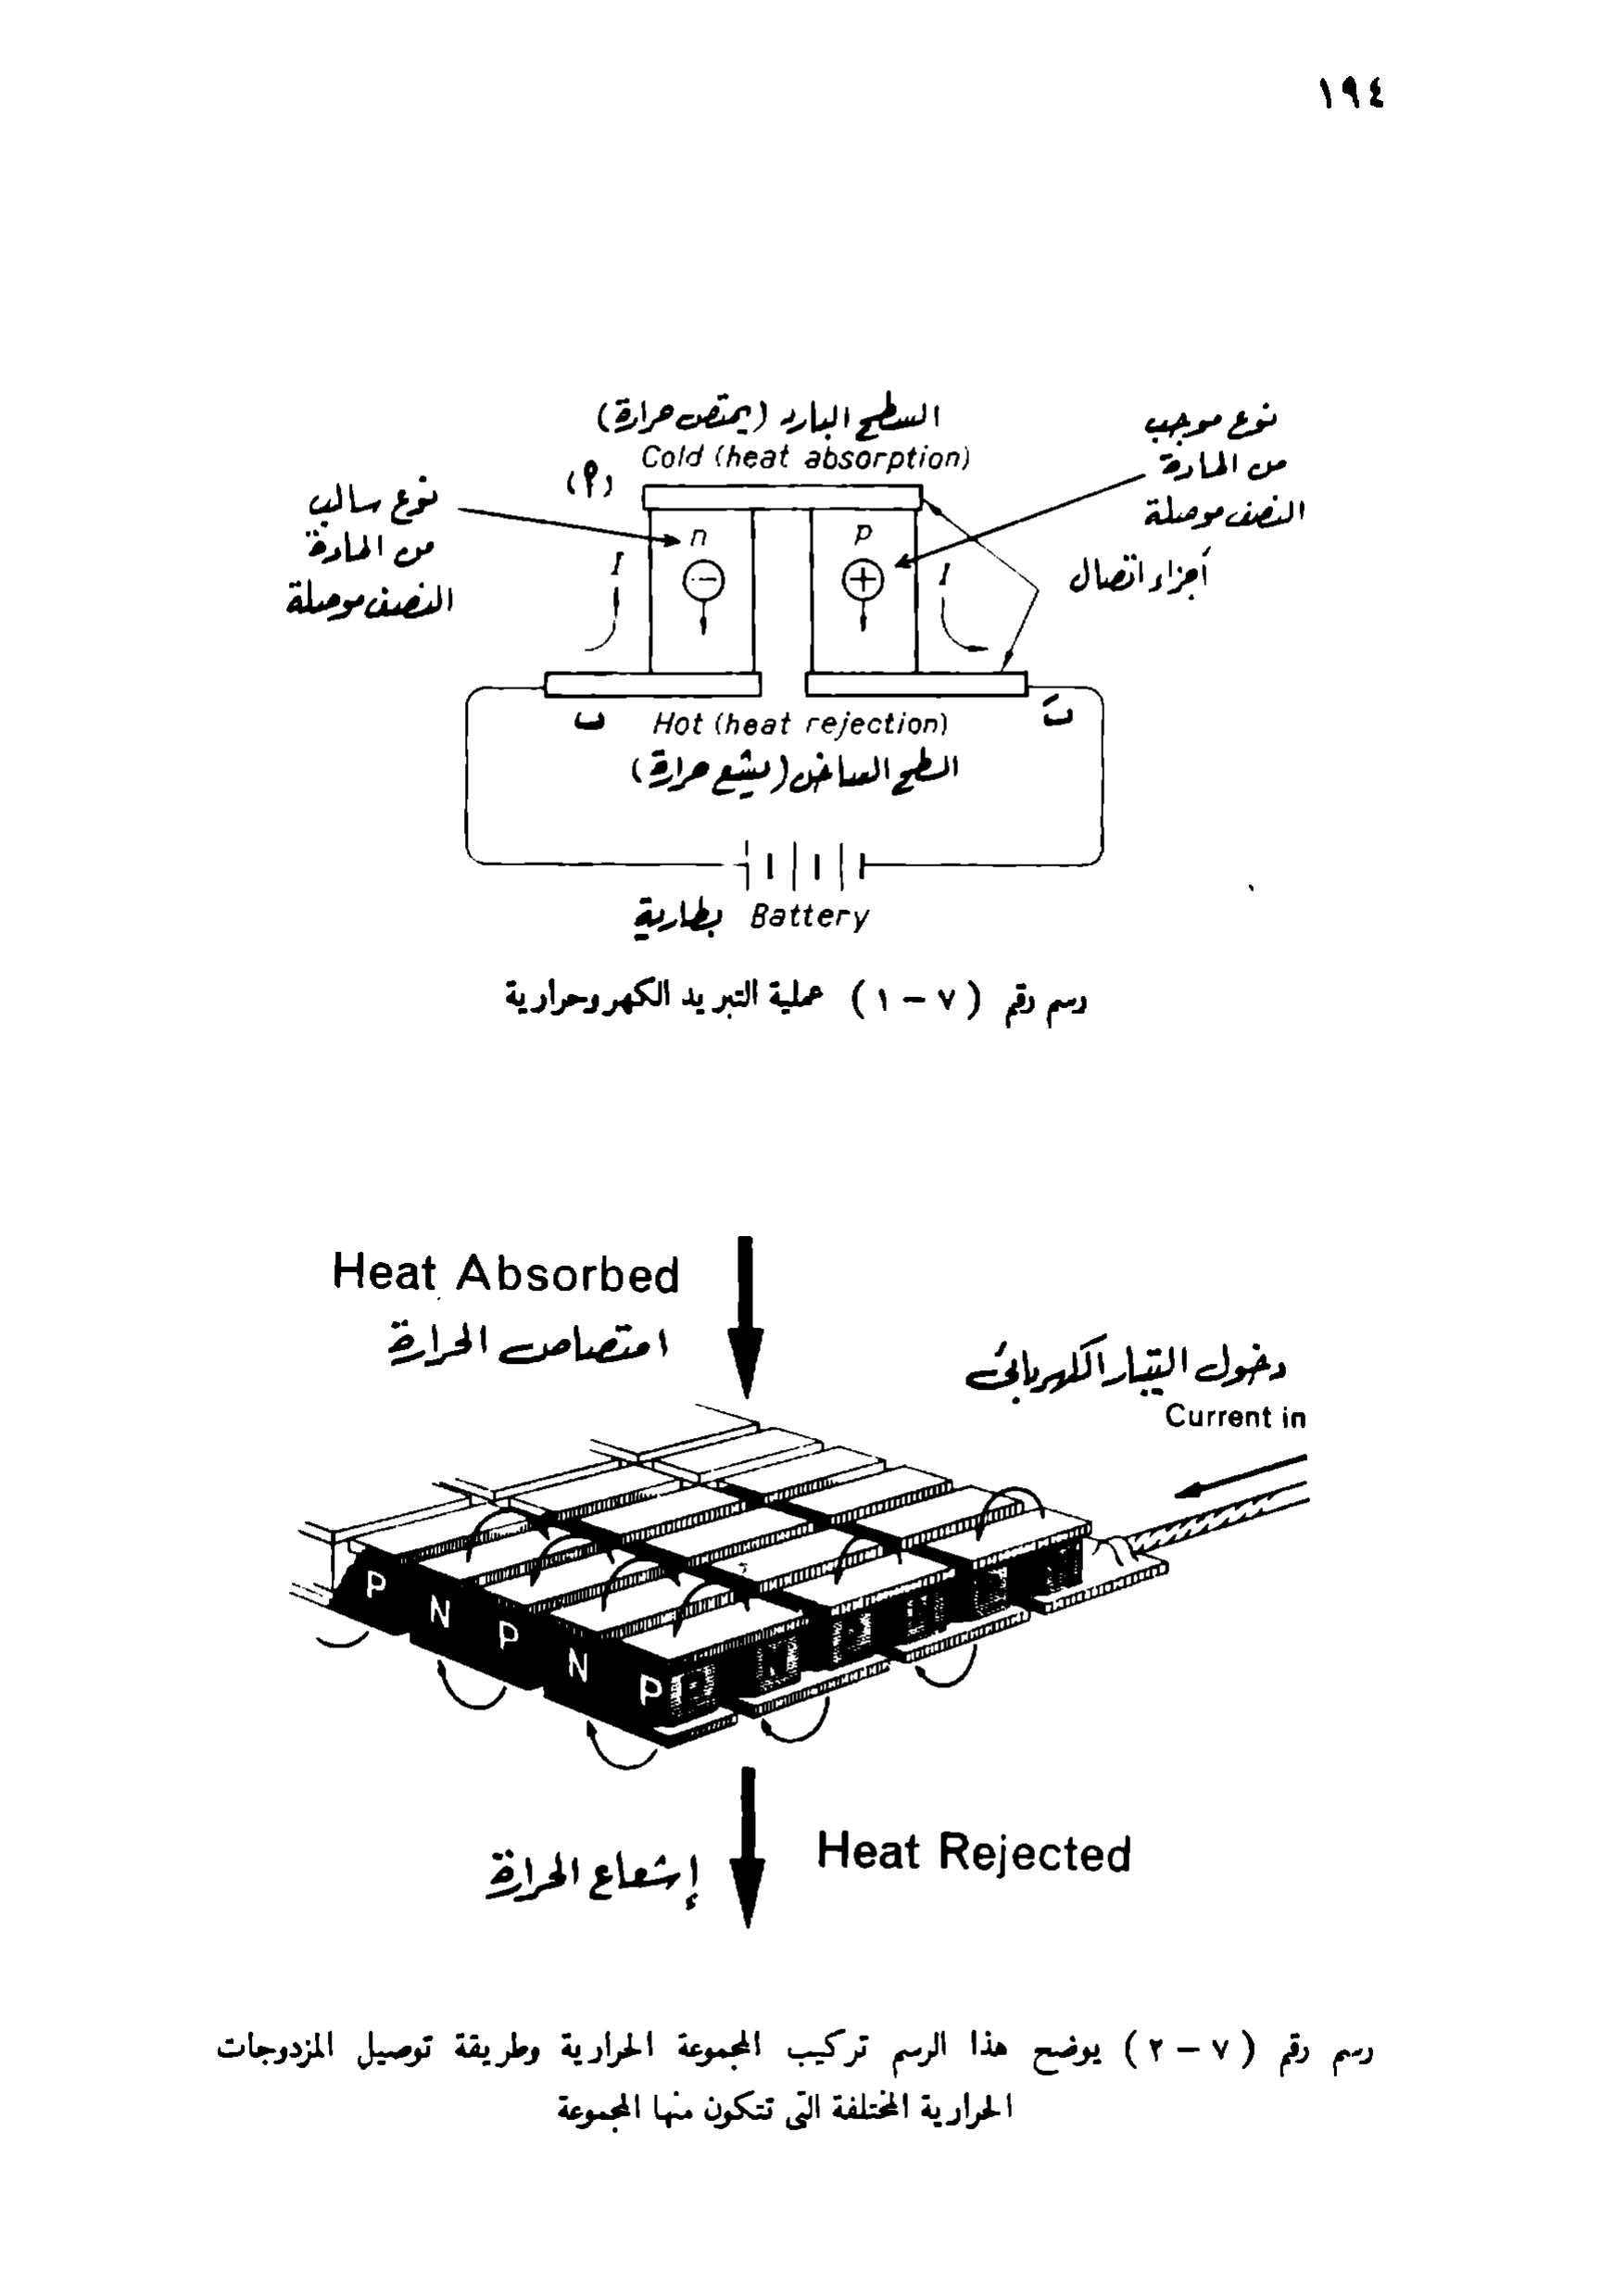 ١٩٤
السطح البارد (يمتص حرارة)
Cold (heat absorption)
(م)
نوع موجب
من المادة
النصف موصلة
نوع سالب
من المادة
النصف موصلة
n
p
I
I
أجزاء اتصال
Hot (heat rejection)
السطح الساخن (يشع حرارة)
بطارية Battery
رسم رقم (٧ – ١) عملية التبريد الكهروحرارية
Heat Absorbed
امتصاص الحرارة
دخول التيار الكهربائى
Current in
P
N
P
N
P
N
P
N
Heat Rejected
إشعاع الحرارة
رسم رقم (٧ – ٢) يوضح هذا الرسم تركيب المجموعة الحرارية وطريقة توصيل المزدوجات
الحرارية المختلفة التى تتكون منها المجموعة